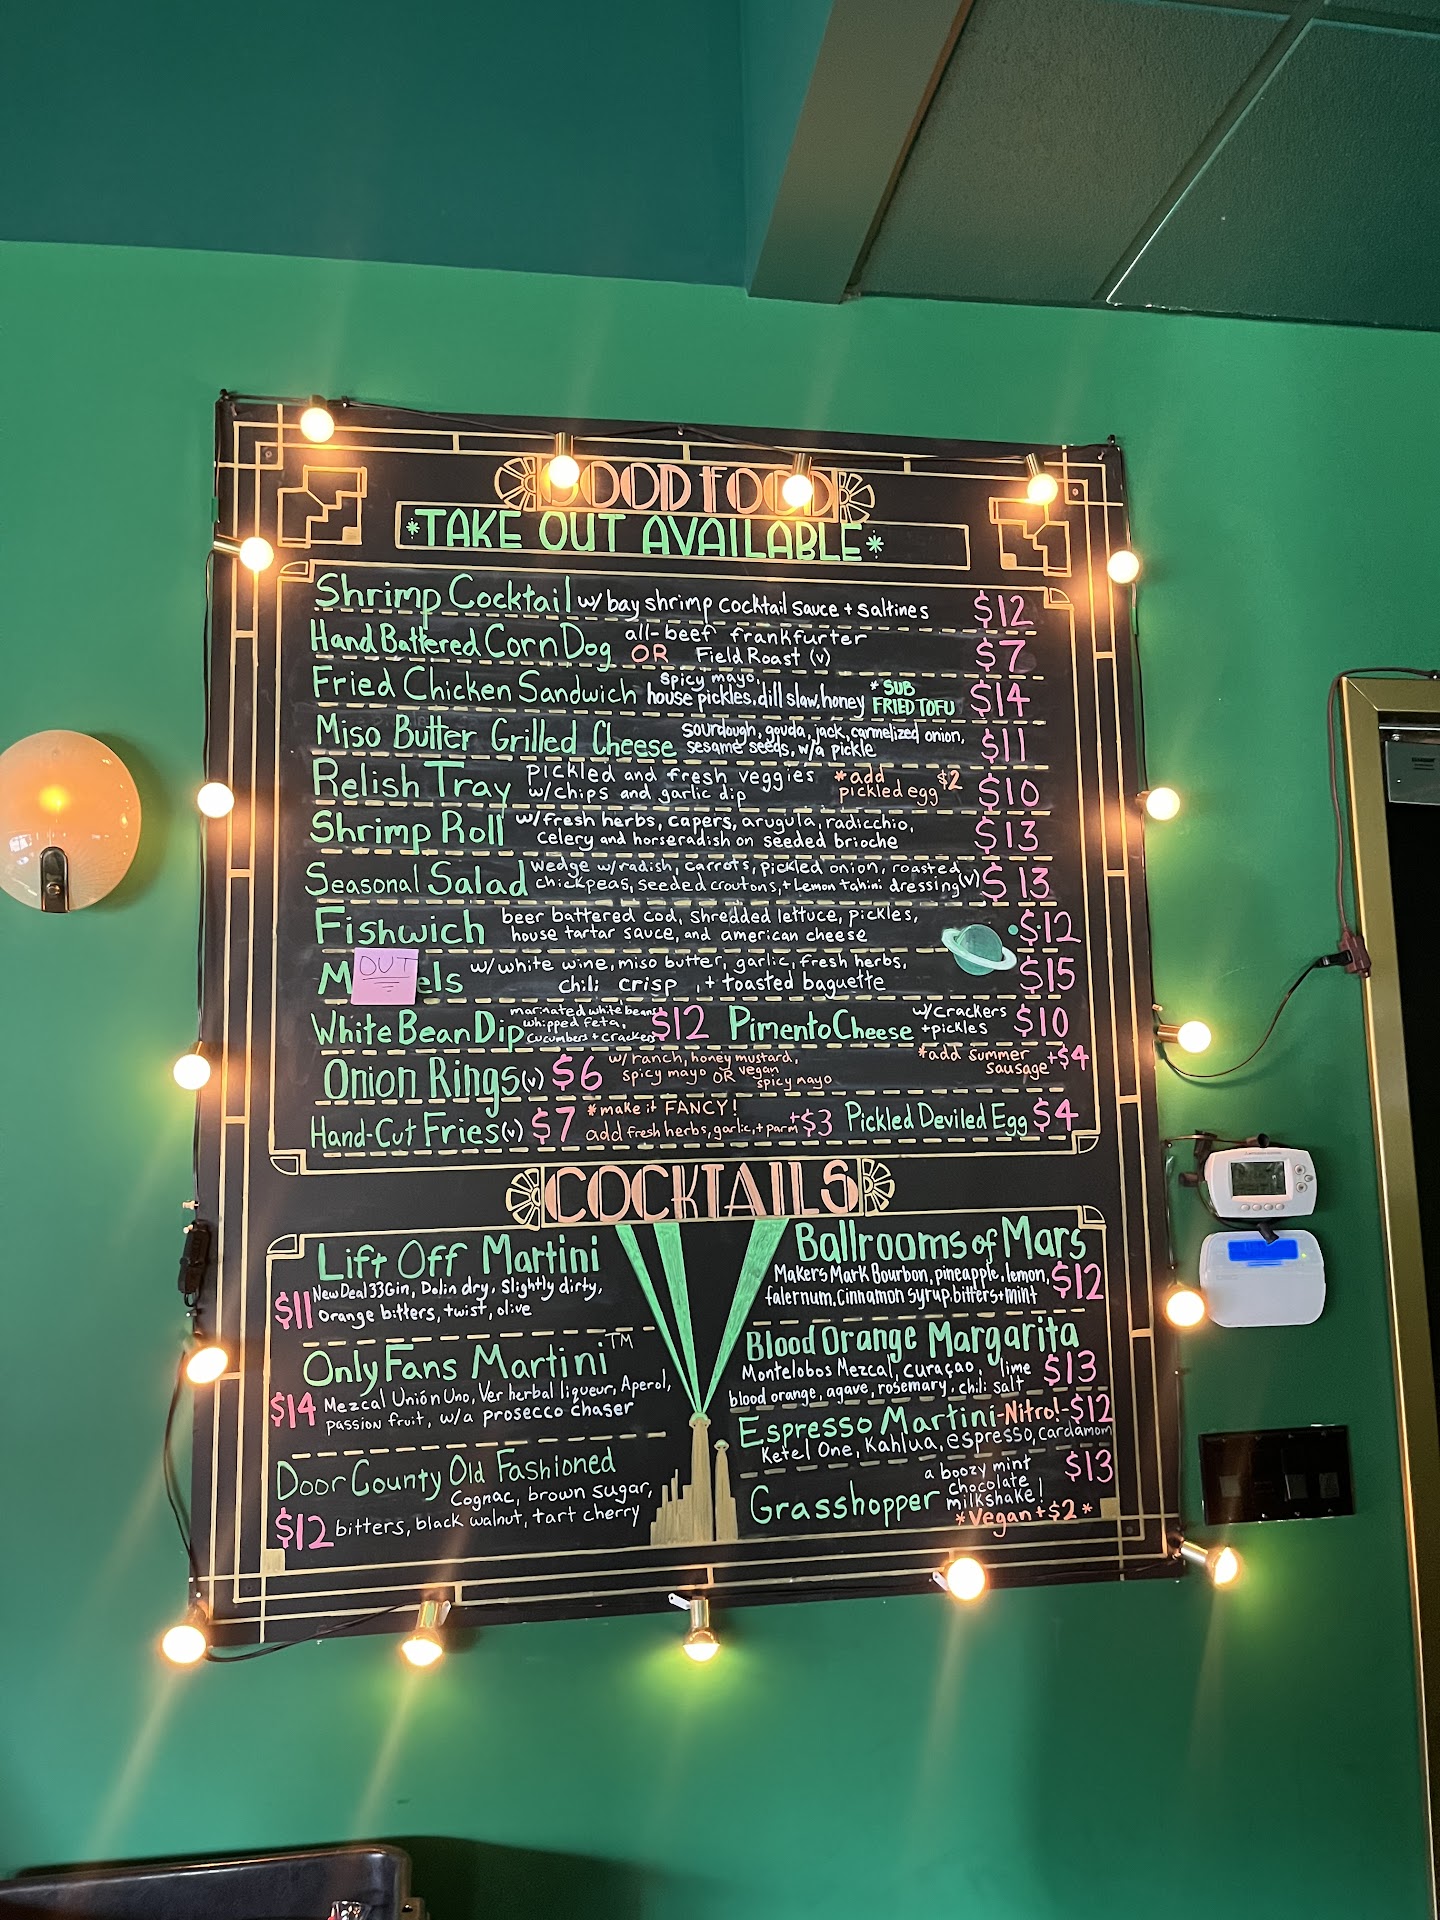 GOOD FOOD
*TAKE OUT AVAILABLE*
Shrimp Cocktail w/ bay shrimp cocktail sauce + saltines $12
Hand Battered Corn Dog all-beef frankfurter
OR Field Roast (v) $7
Fried Chicken Sandwich spicy mayo,
house pickles, dill slaw, honey *SUB
FRIED TOFU $14
Miso Butter Grilled Cheese sourdough, gouda, jack, carmelized onion,
sesame seeds, w/a pickle $11
Relish Tray pickled and fresh veggies
w/chips and garlic dip *add
pickled egg $2 $10
Shrimp Roll w/fresh herbs, capers, arugula, radicchio,
celery and horseradish on seeded brioche $13
Seasonal Salad wedge w/radish, carrots, pickled onion, roasted
chickpeas, seeded croutons, + Lemon tahini dressing (v) $13
Fishwich beer battered cod, shredded lettuce, pickles,
house tartar sauce, and american cheese $12
M OUT els w/white wine, miso butter, garlic, fresh herbs,
chili crisp, + toasted baguette $15
White Bean Dip marinated white beans
whipped feta,
cucumbers + crackers $12
Pimento Cheese w/crackers
+pickles $10
*add summer
sausage +$4
Onion Rings (v) $6 w/ ranch, honey mustard,
spicy mayo OR vegan
spicy mayo
Hand-Cut Fries (v) $7 *make it FANCY!
add fresh herbs, garlic, + parm +$3
Pickled Deviled Egg $4
COCKTAILS
Lift Off Martini
$11 New Deal 33 Gin, Dolin dry, Slightly dirty,
orange bitters, twist, olive
OnlyFans Martini TM
$14 Mezcal Unión Uno, Ver herbal liqueur, Aperol,
passion fruit, w/a prosecco chaser
Door County Old Fashioned
Cognac, brown sugar,
$12 bitters, black walnut, tart cherry
Ballrooms of Mars
Makers Mark Bourbon, pineapple, lemon,
falernum, cinnamon syrup, bitters + mint $12
Blood Orange Margarita
Montelobos Mezcal, curaçao, lime
blood orange, agave, rosemary, chili salt $13
Espresso Martini -Nitro!- $12
Ketel One, Kahlua, espresso, cardamom
Grasshopper a boozy mint
chocolate
milkshake! $13
*Vegan +$2*